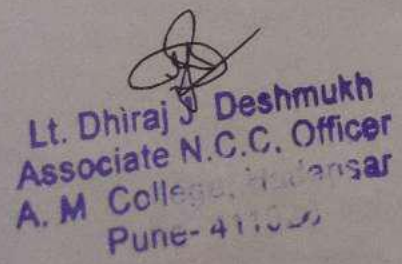 Lt. Dhiraj J Deshmukh
Associate N.C.C. Officer
A. M College, Hadapsar
Pune-